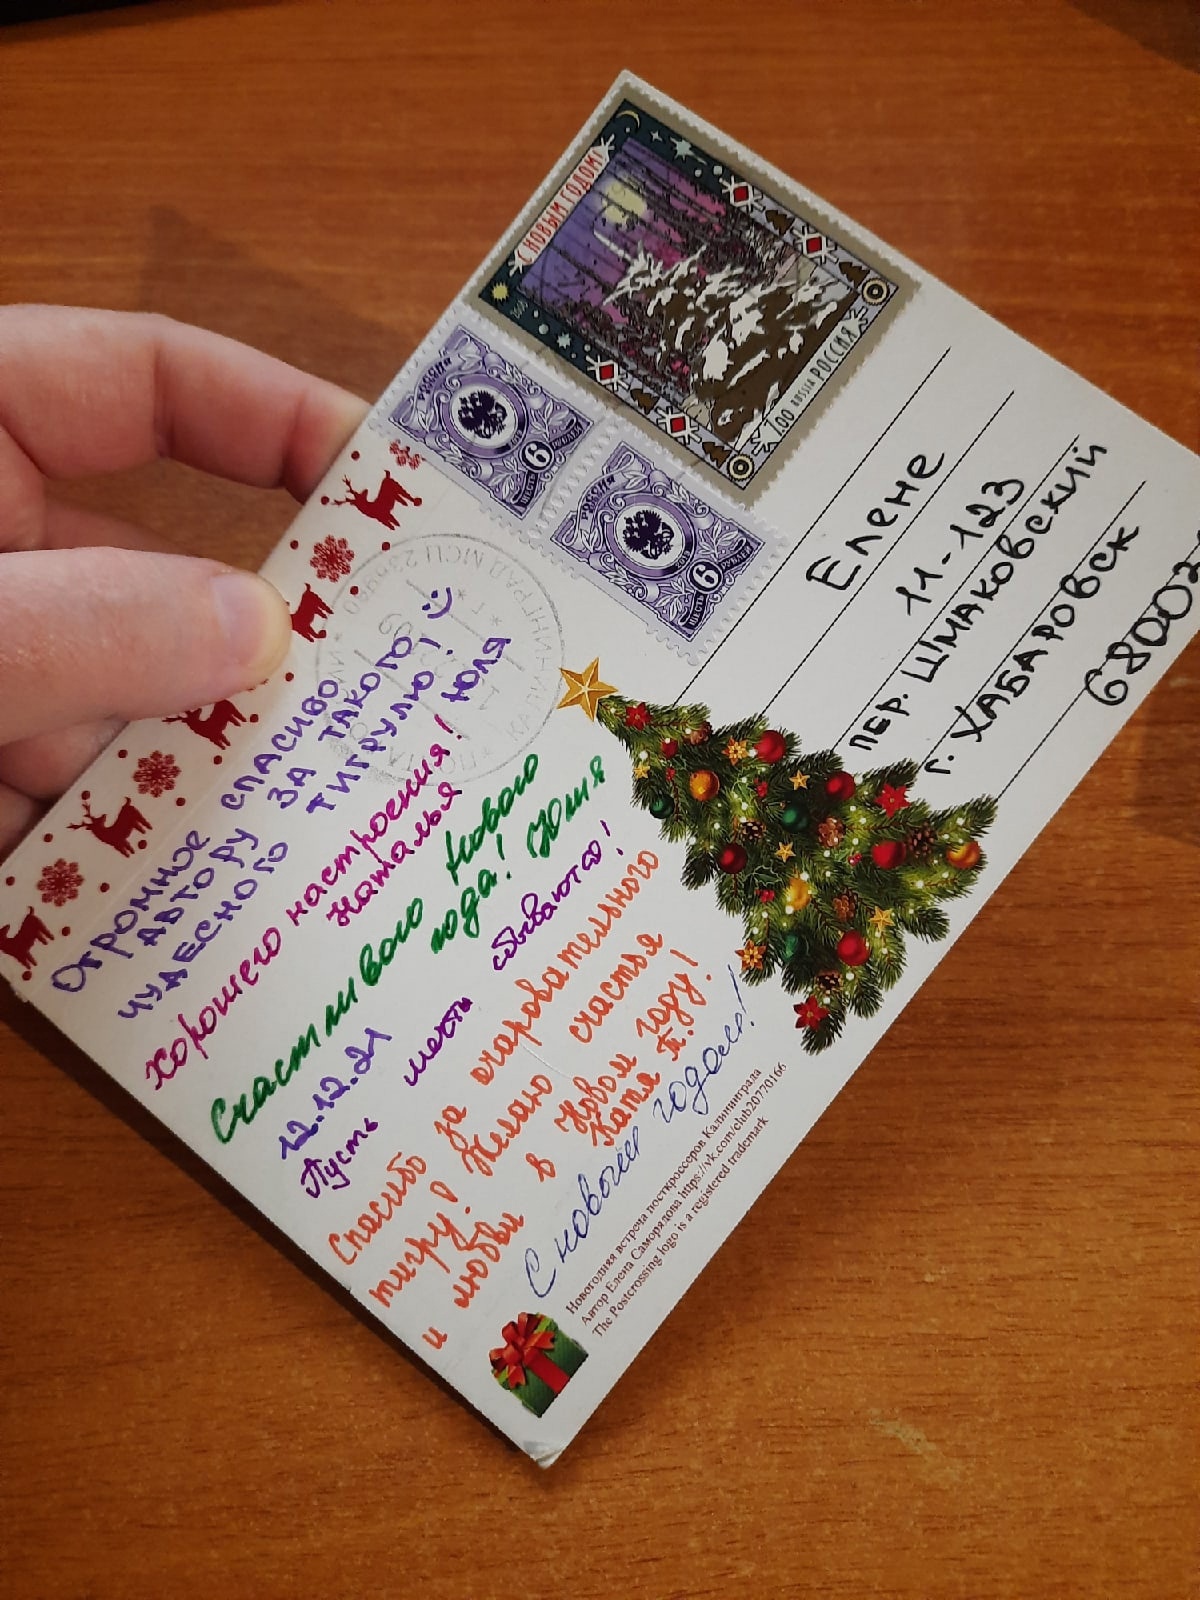 С НОВЫМ ГОДОМ!
7.00 RUSSIA РОССИЯ
РОССИЯ
6
ШЕСТЬ РУБЛЕЙ
РОССИЯ
6
ШЕСТЬ РУБЛЕЙ
Огромное спасибо
автору за такого
чудесного тигрулю! Юля
Хорошего настроения!
Наталья
Счастливого Нового
года! Юлия
12.12.21
Пусть мечты сбываются!
Спасибо за очаровательного
тигру! Желаю счастья
и любви в Новом году!
Катя Т.
С новым годом!
Новогодняя встреча посткроссеров Калининграда
Автор Елена Саморядова https://vk.com/club20770166
The Postcrossing logo is a registered trademark
Елене
11-123
пер. Шмаковский
г. Хабаровск